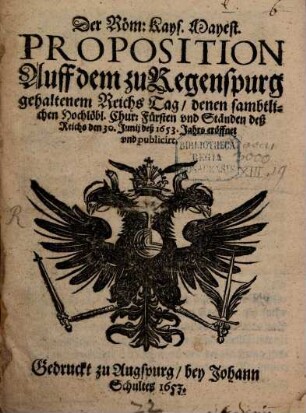 Der Röm: Kays. Mayest.
PROPOSITION
Auff dem zu Regenspurg
gehaltenem Reichs Tag / denen sambtli-
chen Hochlöbl. Chur: Fürsten vnd Ständen deß
Reichs den 30. Junij deß 1653. Jahrs eröffnet
vnd publicirt.
BIBLIOTHECA
REGIA
Gedruckt zu Augspurg / bey Johann
Schultes 1653.